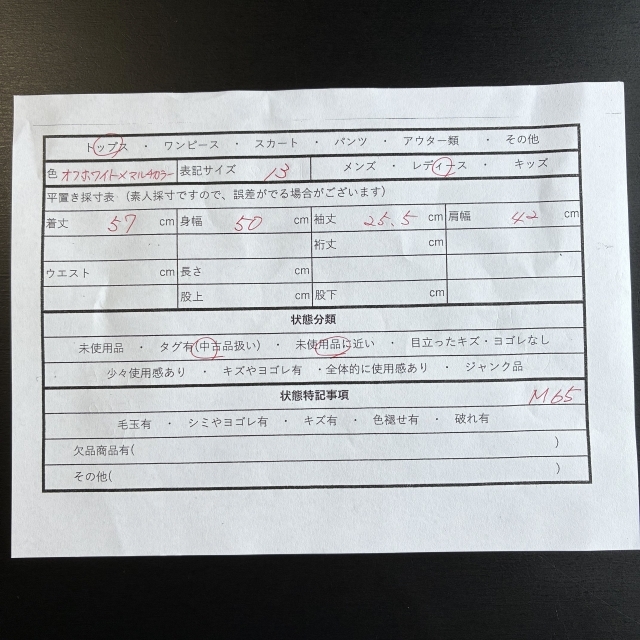 トップス ・ ワンピース ・ スカート ・ パンツ ・ アウター類 ・ その他
色 オフホワイト×マルチカラー 表記サイズ 13 メンズ ・ レディース ・ キッズ
平置き採寸表 (素人採寸ですので、誤差がでる場合がございます)
着丈 57 cm 身幅 50 cm 袖丈 25.5 cm 肩幅 42 cm
裄丈 cm
ウエスト cm 長さ cm
股上 cm 股下 cm
状態分類
未使用品 ・ タグ有(中古品扱い) ・ 未使用品に近い ・ 目立ったキズ・ヨゴレなし
少々使用感あり ・ キズやヨゴレ有 ・全体的に使用感あり ・ ジャンク品
状態特記事項 M65
毛玉有 ・ シミやヨゴレ有 ・ キズ有 ・ 色褪せ有 ・ 破れ有
欠品商品有( )
その他( )